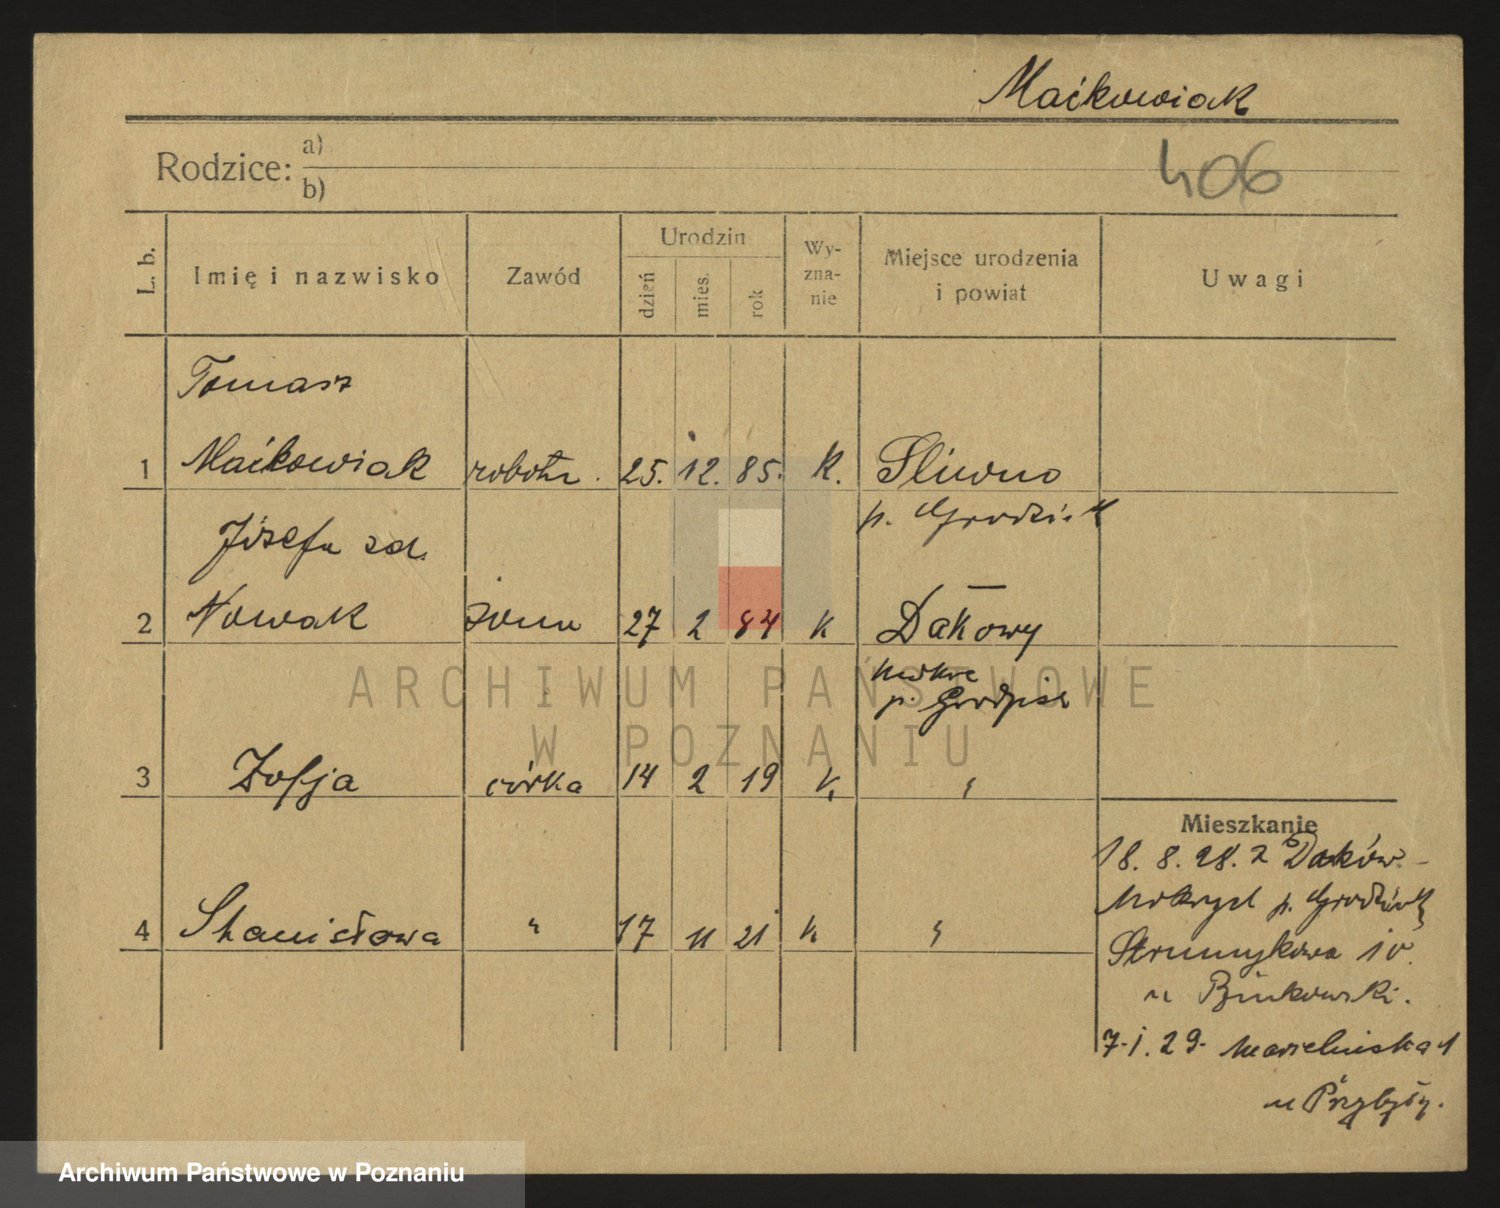 Maćkowiak
Rodzice: a)
b)
406
L. b.
Imię i nazwisko
Zawód
Urodzin
dzień
mies.
rok
Wy-
zna-
nie
Miejsce urodzenia
i powiat
Uwagi
Tomasz
1 Maćkowiak robotn. 25. 12. 85. K. Śliwno
p. Grodzisk
Józefa zd.
2 Nowak żona 27 2 84 K Dakowy
mokre
p. Grodzisk
3 Zofja córka 14 2 19 K. "
4 Stanisława " 17 11 21 K. "
Mieszkanie
18. 8. 28. z Daków.
Mokrych p. Grodzisk
Strumykowa 10.
u Binkowski.
7. 1. 29. Marcelińska
u Przybył.
ARCHIWUM PAŃSTWOWE
W POZNANIU
Archiwum Państwowe w Poznaniu